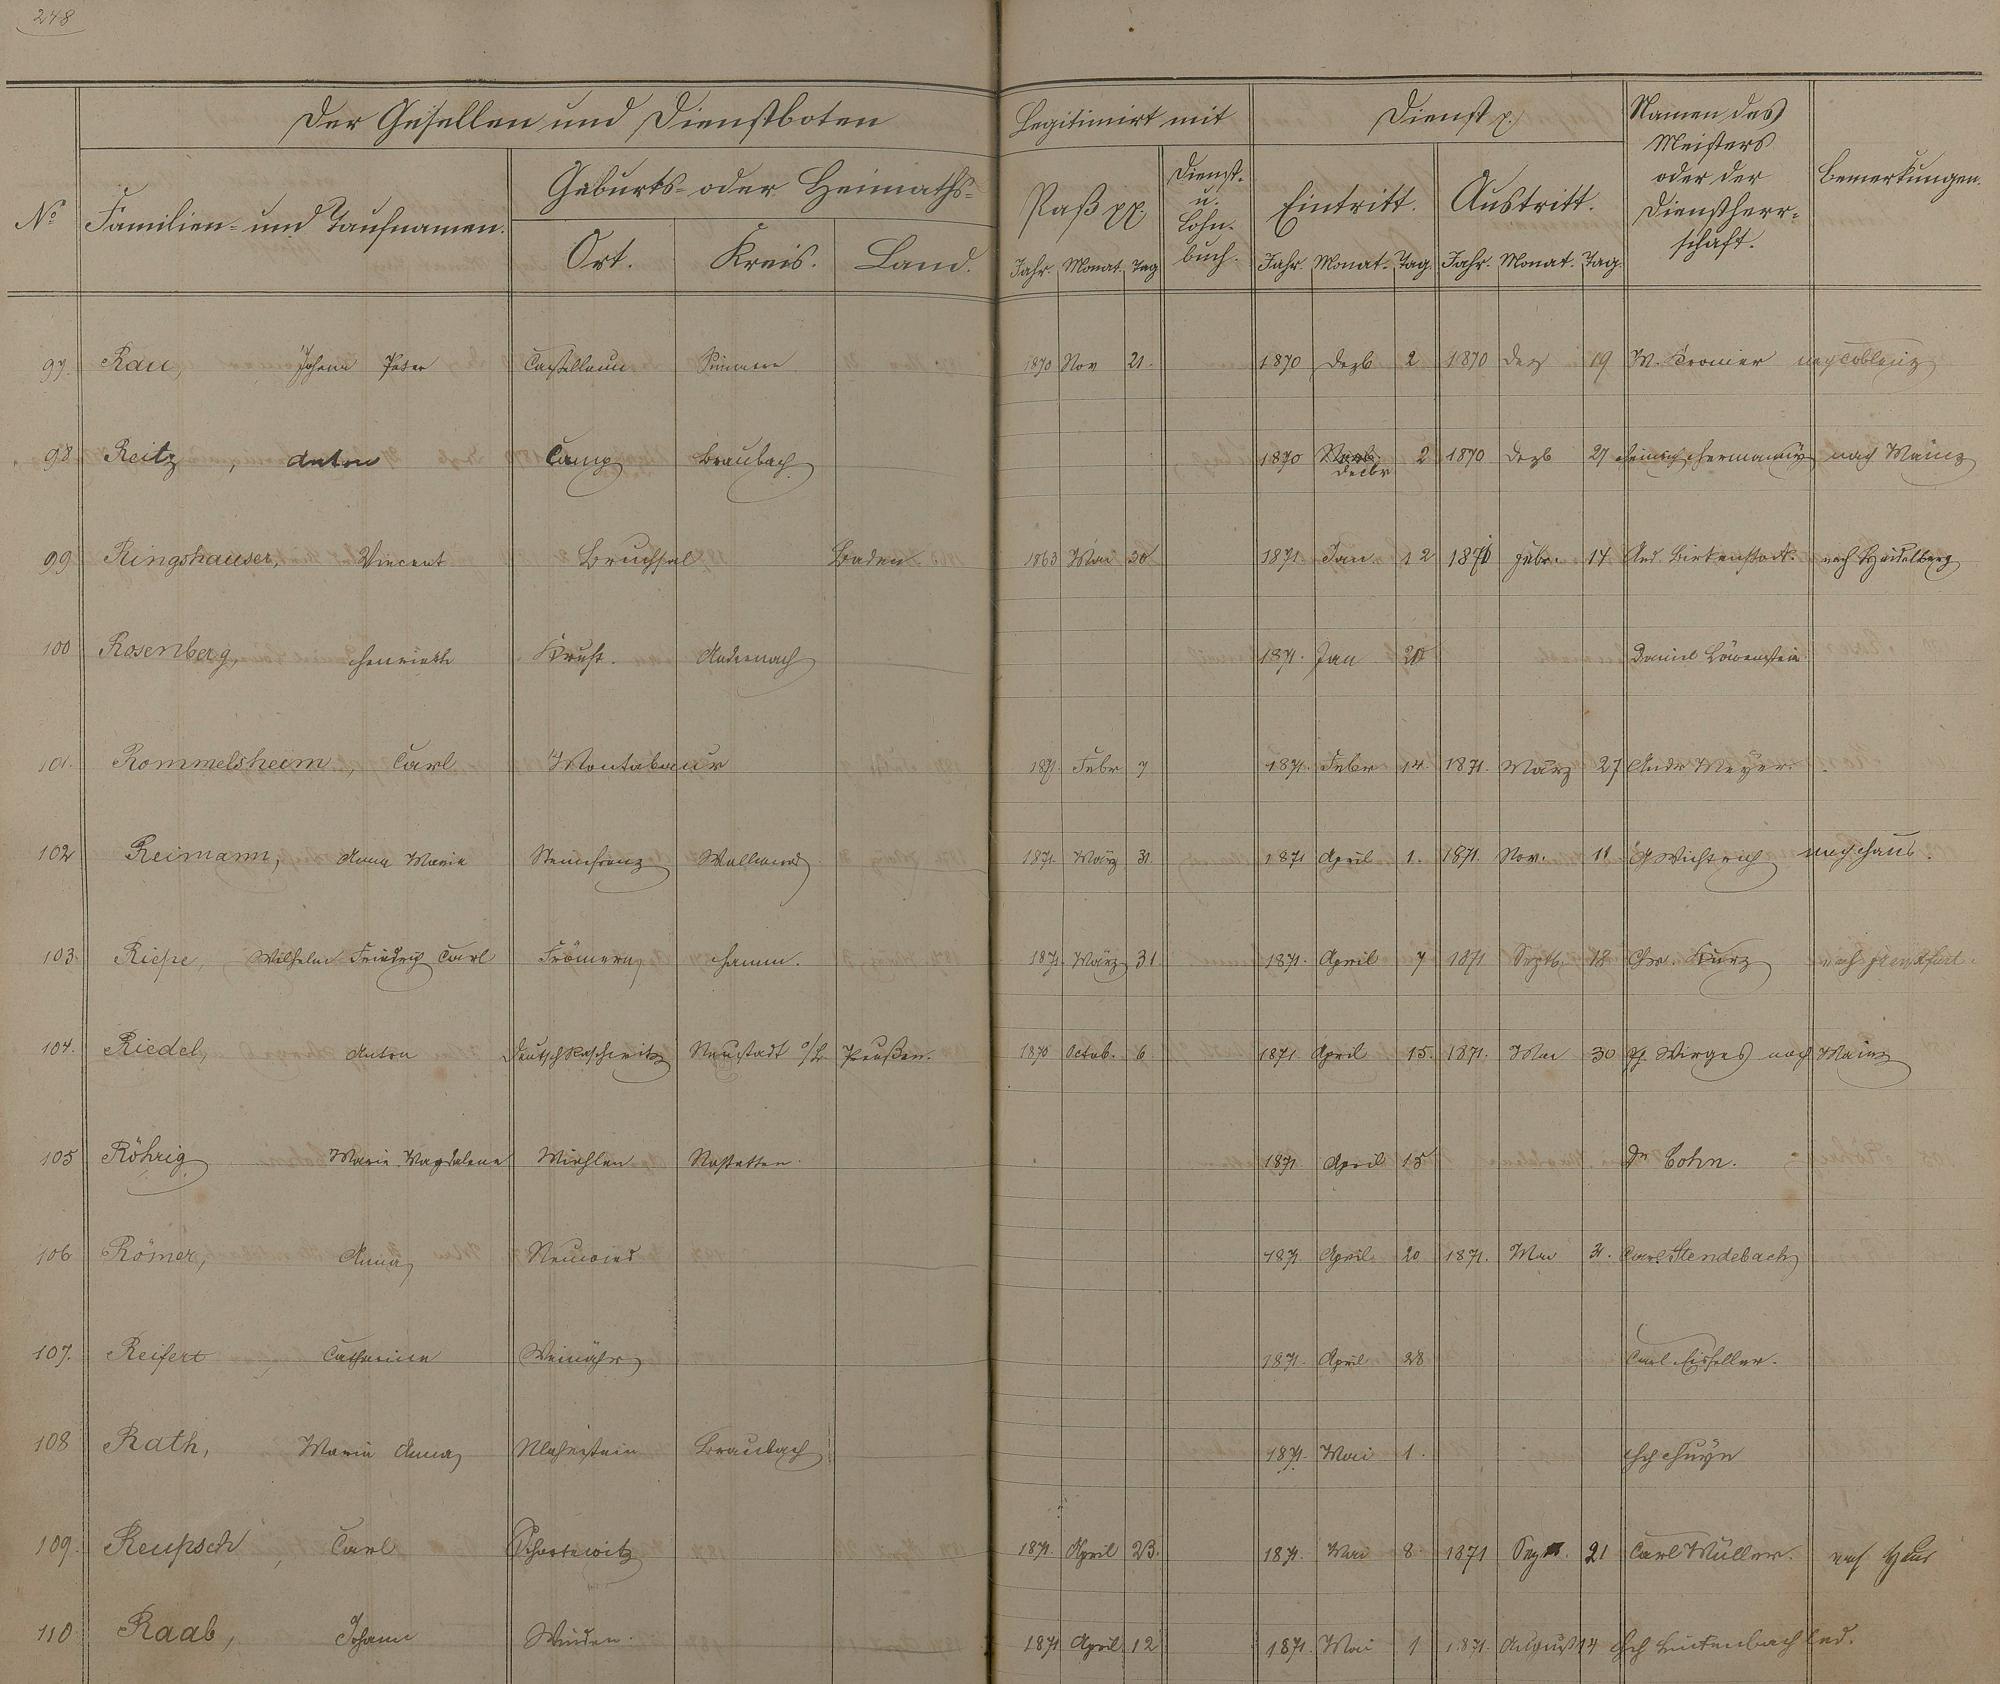 248
Der Gesellen und Dienstboten
Legitimirt mit
Dienst p.
Namen des Meisters oder der Dienstherrschaft.
Bemerkungen.
No
Familien- und Taufnamen.
Geburts- oder Heimaths-
Ort. Kreis. Land.
Paß pp.
Dienst- u. Lohn- buch.
Eintritt. Austritt.
Jahr Monat Tag Jahr. Monat. Tag. Jahr. Monat. Tag.
97. Rau, Johann Peter Castellaun Simmern 1870 Nov 21. 1870 Dezb 2 1870 Dez 19 W. Kromer nach Coblenz
98 Reitz, Anton Camp Braubach. 1870 Decbr 2 1870 Dezb 27 Heinrich nach Mainz
99 Ringshauser, Vincent Bruchsal Baden. 1863 Mai 30 1871. Jan. 12 1871 Febr. 14 And. Birkenstock. nach Heidelberg
100 Rosenberg, Henriette Kruft. Andernach 1871. Jan 20 Daniel Löwenstein
101. Rommelsheim, Carl Montabaur 1871. Febr 7 1871. Febr 14. 1871. März 27 Andr Meyer.
102 Reimann, Anna Maria Wallmerod 1871. März 31. 1871 April 1. 1871. Nov. 11 nach Haus.
103. Riepe, Wilhelm Friedrich Carl Frömern Hamm. 1871. März 31 1871. April 7 1871 Septb. 18 Chr. Kurz nach Frankfurt.
104. Riedel, Anton Deutsch Raschwitz Neustadt Preußen. 1870 Octob. 6 1871 April 15. 1871. Mai 30 Wirges nach Mainz
105 Röhrig Marie Magdalena Miehlen Nastätten. 1871. April 15 Dr Cohn.
106 Römer, Anna Neuwied 1871. April 20 1871. Mai 31. Carl Stendebach
107. Reifert, Catharina Weinähr 1871. April 28 Carl Eisfeller.
108 Rath, Maria Anna Nlahnstein Braubach 1871. Mai 1.
109. Reupsch, Carl 1871. April 23. 1871. Mai 8 1871 21 Carl Müller. nach Haus
110 Raab, Johann Winden. 1871 April. 12 1871. Mai 1 1871. August 14